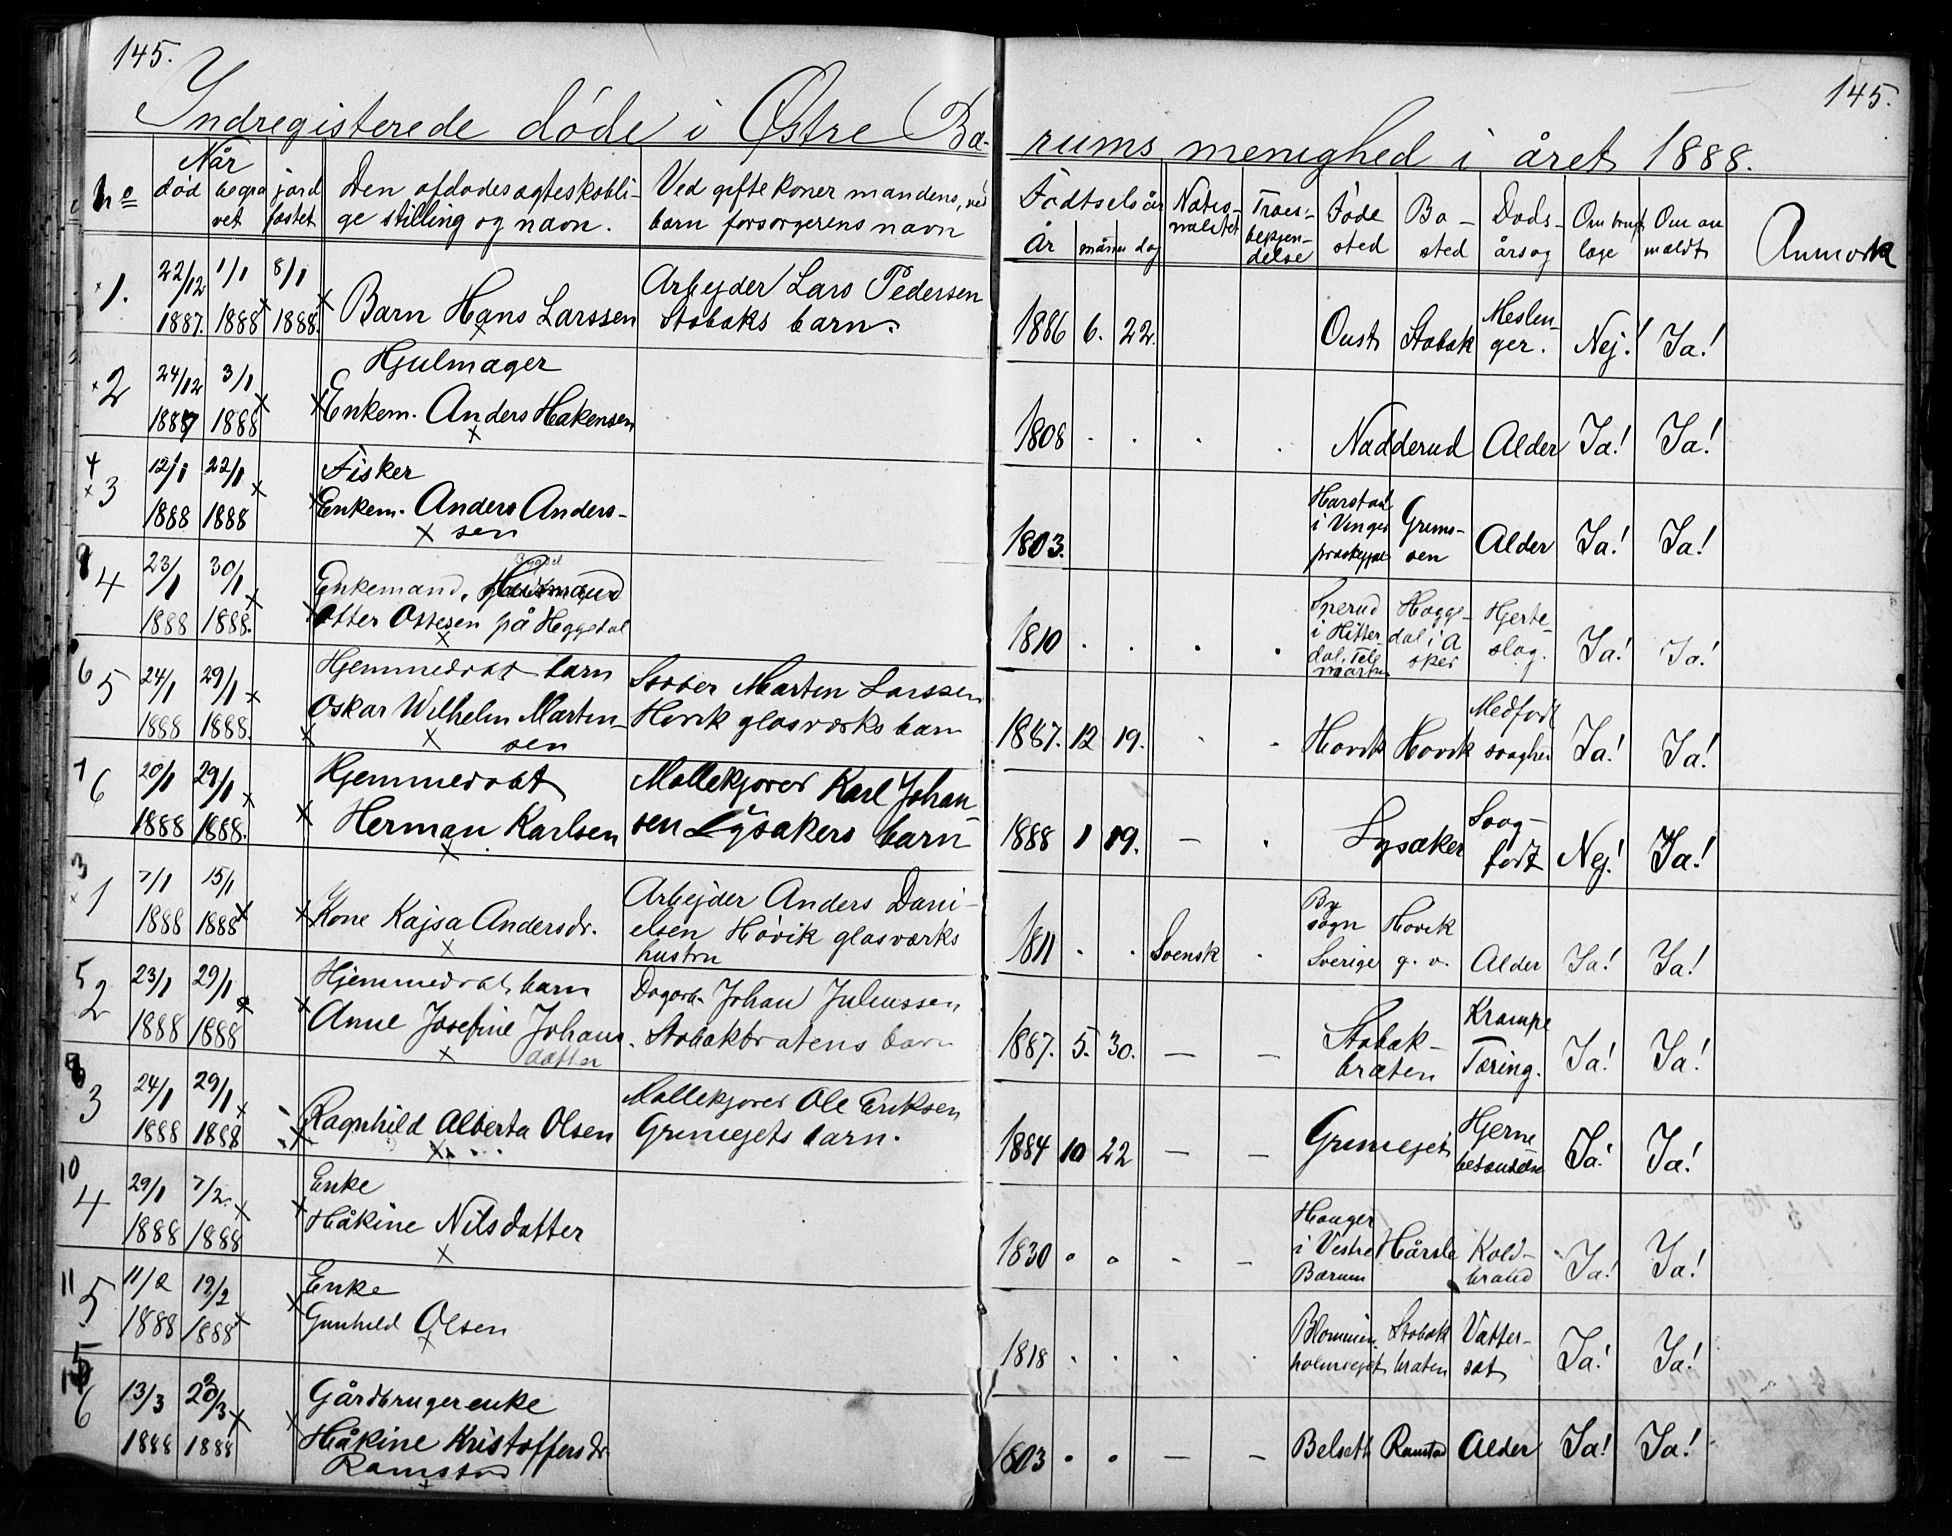 145.
145.
Indregisterede døde i Østre Bæ-
rums menighed i året 1888.
No
Når
død begra vet jord fæstet
Den afdødes ægteskabli-
ge stilling og navn.
Ved gifte koner mandens, ved
barn forsørgerens navn
Fødselsår
År måned dag
Natio-
nalitet
Troes-
bekjen-
delse
Føde
sted
Bo-
sted
Døds-
årsag
Om
læge
Om an
mældt
Anmærk
1. 22/12 1887. 1/1 1888 8/1 1888.
Barn Hans Larssen
Arbejder Lars Pedersen
Stabæks barn.
1886 6. 22. Stabæk Meslin-
ger. Nej! Ja!
2 24/12 1887 3/1 1888
Hjulmager
Enkem. Anders Hakensen
1808 . . . . Nadderud Alder Ja! Ja!
4
3 12/1 1888 22/1 1888
Fisker
Enkem. Anders Anders-
sen
1803.
Harstad
i Vinger
Alder Ja! Ja!
4 23/1 1888 30/1 1888.
Enkemand.
Otter Ottesen på Heggedal
1810 . . . .
i Hitter
dal. Tele
marken
Hegge-
dal i A
sker
Hjerte-
slag. Ja! Ja!
6
5 24/1 1888 29/1 1888.
Hjemmedøbt barn
Oskar Wilhelm Martin-
sen
Martin Larssen
Høvik glasværks barn
1887. 12 19. . . Høvik Høvik Medfødt
svaghed Ja! Ja!
7
6 20/1 1888 29/1 1888.
Hjemmedøbt
Herman Karlsen
Møllekjører Karl Johan-
sen Lysakers barn
1888 1 19. — . Lysaker Svag-
født Nej! Ja!
3
1 7/1 1888 15/1 1888
Kone Kajsa Andersdr.
Arbejder Anders Dani-
elsen Høvik glasværks
hustru
1811 . . Svensk .
By
sogn
Sverige
Høvik
g. v. Alder Ja! Ja!
5
2 23/1 1888 29/1 1888
Hjemmedøbt barn
Anne Josefine Johans
datter
Dagarb. Johan Juliussen
Stabækbråtens barn
1887. 5. 30. — — Stabæk-
bråten
Krampe
Tæring. Ja! Ja!
3 24/1 1888 29/1 1888
Ragnhild Alberta Olsen
Møllekjører Ole Eriksen
Griniejets barn.
1884 10 22 — — Griniejet Hjerne
betændelse Ja! Ja!
10
4 29/1 1888 7/2 1888
Enke
Håkine Nilsdatter
1830 . . . —
Hauger
i Vestre
Bærum
Hårsla Kold-
brand Ja! Ja!
11
5 11/2 1888 19/2 1888
Enke
Gunhild Olsen
1818 . . . .
Blommen
holmejet
Stabæk
bråten
Vatter-
sot Ja! Ja!
6 13/3 1888 20/3 1888
Gårdbrugerenke
Håkine Kristoffersdr
Ramstad
1803 . . — — Belset Ramstad Alder Ja! Ja!